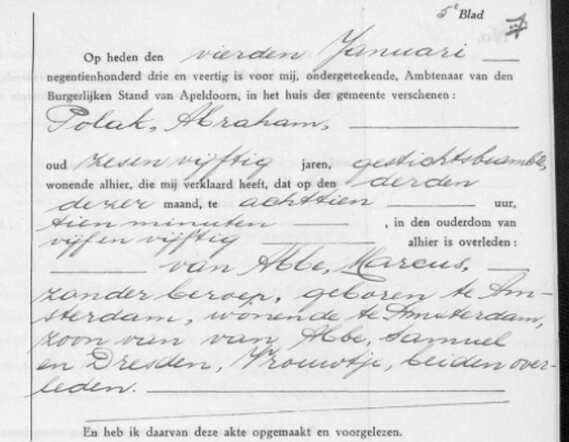 5e Blad
Op heden den vierden Januari
negentienhonderd drie en veertig is voor mij, ondergeteekende, Ambtenaar van den
Burgerlijken Stand van Apeldoorn, in het huis der gemeente verschenen:
Polak, Abraham,
oud zesen vijftig jaren, gestichtsbeambte,
wonende alhier, die mij verklaard heeft, dat op den derden
dezer maand, te achttien uur,
tien minuten , in den ouderdom van
vijfen vijftig alhier is overleden:
van Abbe, Marcus,
zonder beroep, geboren te Am-
sterdam, wonende te Amsterdam,
zoon van van Abbe, Samuel
en Dresden, Vrouwtje, beiden over-
leden.
En heb ik daarvan deze akte opgemaakt en voorgelezen.